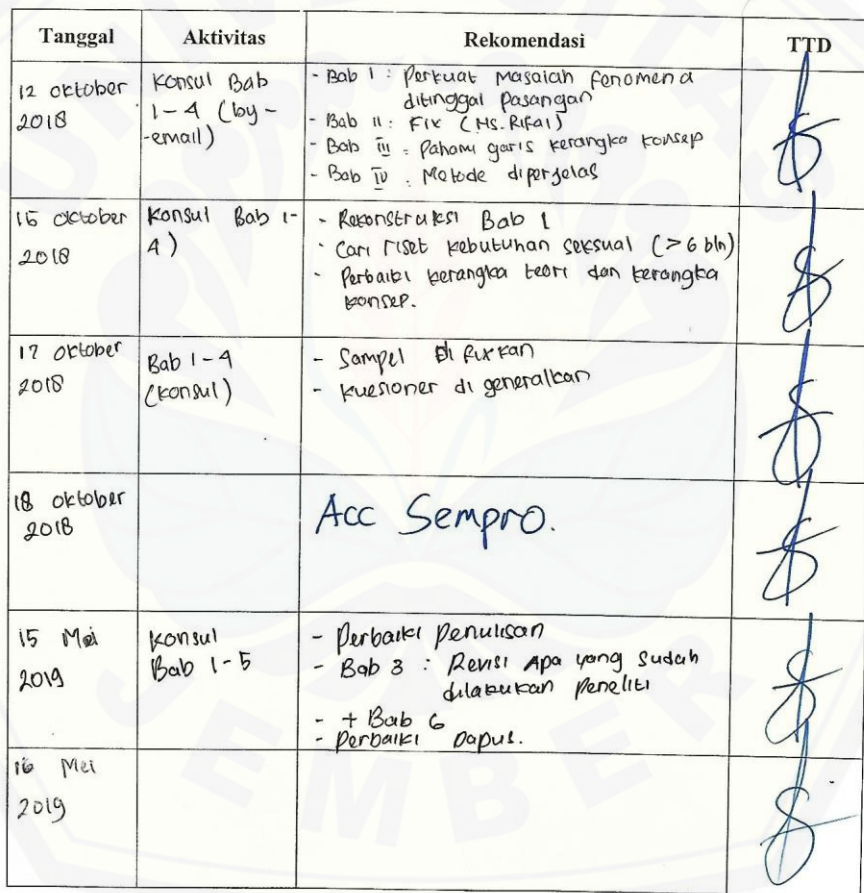 Tanggal Aktivitas Rekomendasi TTD
12 Oktober 2018
Konsul Bab
1-4 (by-
-email)
- Bab 1 : Perkuat Masalah fenomena
ditinggal pasangan
- Bab II : Fix (Ms. Rifai)
- Bab III : Pahami garis kerangka konsep
- Bab IV : Metode diperjelas
Oktober
2018
Konsul Bab 1-
4)
- Rekonstruksi Bab 1
- Cari riset kebutuhan seksual (>6 bln)
- Perbaiki kerangka teori dan kerangka
konsep.
17 Oktober
2018
Bab 1-4
(konsul)
- Sampel di fixkan
- Kuesioner di generalkan
18 Oktober
2018
Acc Sempro.
15 Mei
2019
Konsul
Bab 1-5
- Perbaiki Penulisan
- Bab 3 : Revisi Apa yang sudah
dilakukan Peneliti
- + Bab 6
- Perbaiki Dapus.
16 Mei
2019
UNIVERSITAS
JEMBER